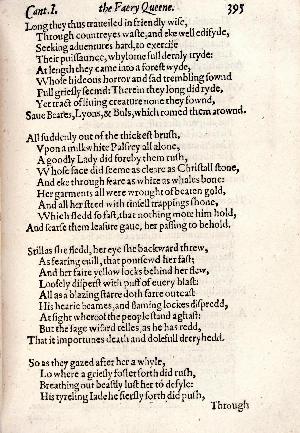 Cant. I.
the Faery Queene.
395
Long they thus traueiled in friendly wise,
Through countreyes waste, and eke well edifyde,
Seeking aduentures hard, to exercise
Their puissaunce, whylome full dernly tryde:
At length they came into a forest wyde,
Whose hideous horror and sad trembling sownd
Full griesly seemd: Therein they long did ryde,
Yet tract of liuing creature none they fownd,
Saue Beares, Lyons, & Buls, which romed them arownd.
All suddenly out of the thickest brush,
Vpon a milkwhite Palfrey all alone,
A goodly Lady did foreby them rush,
Whose face did seeme as cleare as Christall stone,
And eke through feare as white as whales bone:
Her garments all were wrought of beaten gold,
And all her steed with tinsell trappings shone,
Which fledd so fast, that nothing mote him hold,
And scarse them leasure gaue, her passing to behold.
Still as she fledd, her eye she backward threw,
As fearing euill, that poursewd her fast;
And her faire yellow locks behind her flew,
Loosely disperst with puff of euery blast:
All as a blazing starre doth farre outcast
His hearie beames, and flaming lockes dispredd,
At sight whereof the people stand aghast:
But the sage wisard telles, as he has redd,
That it importunes death and dolefull dreryhedd.
So as they gazed after her a whyle,
Lo where a griesly foster forth did rush,
Breathing out beastly lust her to defyle:
His tyreling Iade he fiersly forth did push,
Through